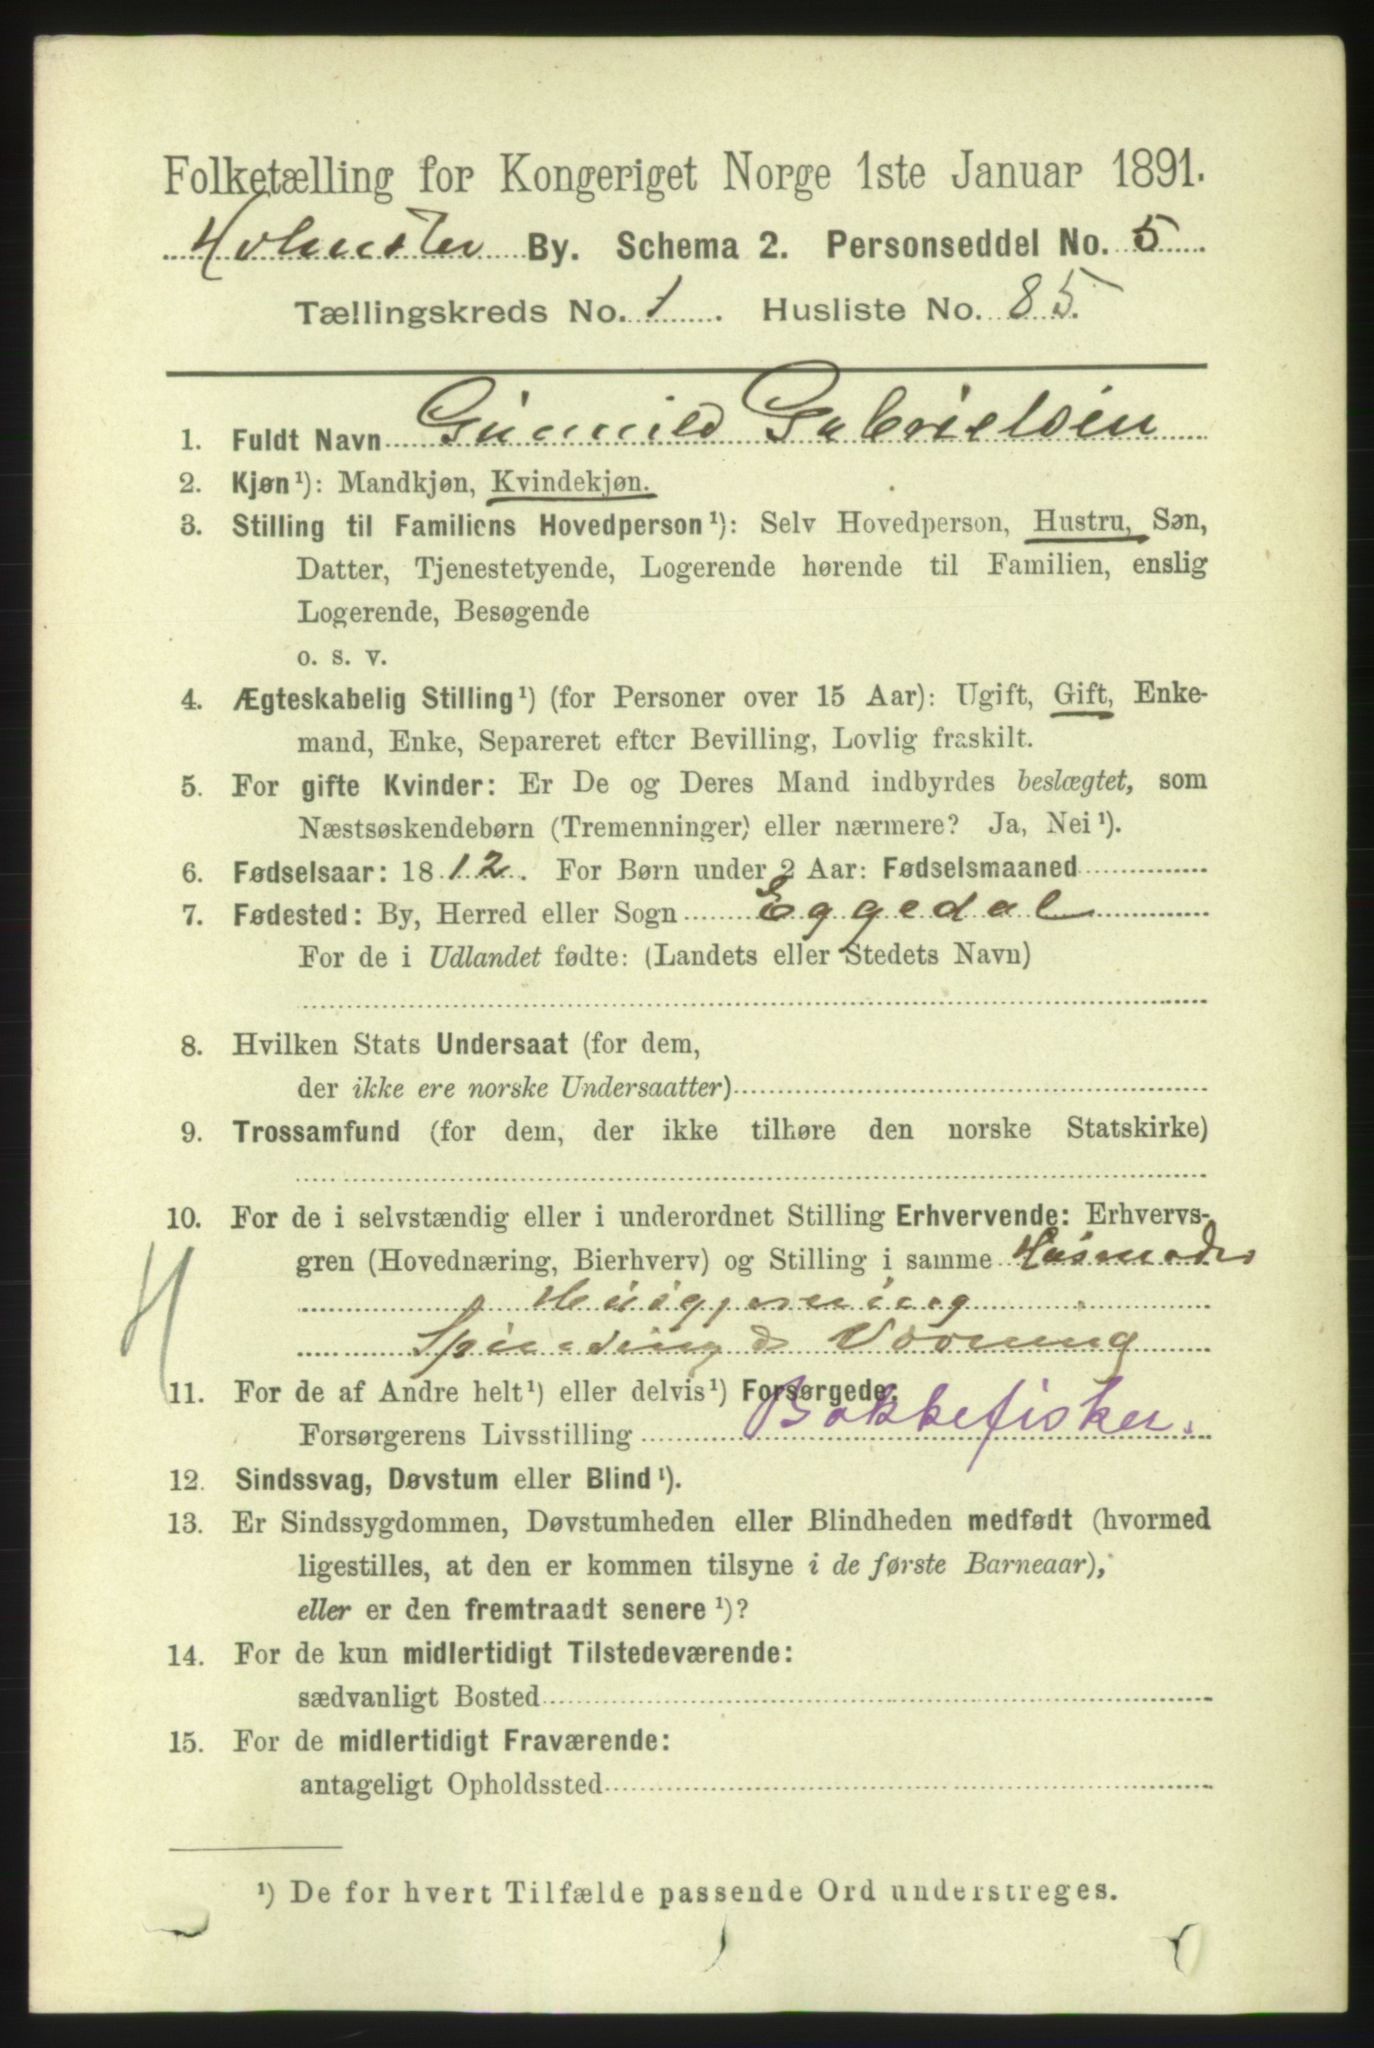 Folketælling for Kongeriget Norge 1ste Januar 1891.
By. Schema 2. Personseddel No. 5
Tællingskreds No. 1. Husliste No. 85.
1. Fuldt Navn Gunnild Gabrielsen
2. Kjøn¹): Mandkjøn, Kvindekjøn.
3. Stilling til Familiens Hovedperson¹): Selv Hovedperson, Hustru, Søn,
Datter, Tjenestetyende, Logerende hørende til Familien, enslig
Logerende, Besøgende
o. s. v.
4. Ægteskabelig Stilling¹) (for Personer over 15 Aar): Ugift, Gift, Enke-
mand, Enke, Separeret efter Bevilling, Lovlig fraskilt.
5. For gifte Kvinder: Er De og Deres Mand indbyrdes beslægtet, som
Næstsøskendebørn (Tremenninger) eller nærmere? Ja, Nei¹).
6. Fødselsaar: 1812. For Børn under 2 Aar: Fødselsmaaned
7. Fødested: By, Herred eller Sogn Eggedal
For de i Udlandet fødte: (Landets eller Stedets Navn)
8. Hvilken Stats Undersaat (for dem,
der ikke ere norske Undersaatter)
9. Trossamfund (for dem, der ikke tilhøre den norske Statskirke)
10. For de i selvstændig eller i underordnet Stilling Erhvervende: Erhvervs-
gren (Hovednæring, Bierhverv) og Stilling i samme Husmoder
Husgjerning
H
11. For de af Andre helt¹) eller delvis¹) Forsørgede:
Forsørgerens Livsstilling Bakkefisker.
12. Sindssvag, Døvstum eller Blind¹).
13. Er Sindssygdommen, Døvstumheden eller Blindheden medfødt (hvormed
ligestilles, at den er kommen tilsyne i de første Barneaar),
eller er den fremtraadt senere¹)?
14. For de kun midlertidigt Tilstedeværende:
sædvanligt Bosted
15. For de midlertidigt Fraværende:
antageligt Opholdssted
¹) De for hvert Tilfælde passende Ord understreges.